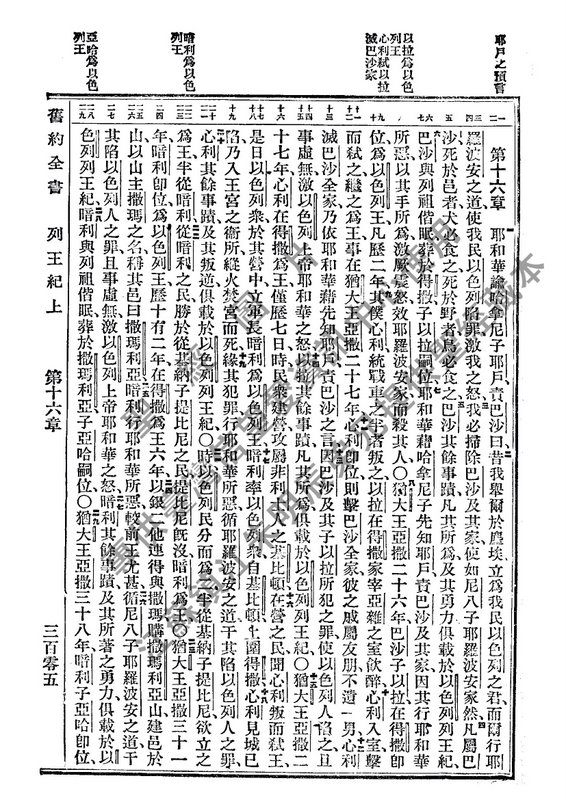 耶戶之預言
以拉為以色
列王
心利弑以拉
滅巴沙家
暗利為以色
列王
亞哈為以色
列王
第十六章 耶和華諭哈拿尼子耶戶責巴沙曰昔我舉爾於塵埃立為我民以色列之君而爾行耶
羅波安之道使我民以色列陷罪激我之怒我必掃除巴沙及其家使如尼八子耶羅波安家然凡屬巴
沙死於邑者犬必食之死於野者鳥必食之巴沙其餘事蹟凡其所為及其勇力俱載於以色列列王紀
巴沙與列祖偕眠葬於得撒子以拉嗣位耶和華藉哈拿尼子先知耶戶責巴沙及其家因其行耶和華
所惡以其手所為激厥震怒效耶羅波安家而殺其人〇猶大王亞撒二十六年巴沙子以拉在得撒即
位為以色列王凡歷二年其僕心利統戰車之半者叛之以拉在得撒家宰亞雜之室飲醉心利入室擊
而弑之繼之為王事在猶大王亞撒二十七年心利即位則擊巴沙全家彼之戚屬友朋不遺一男心利
滅巴沙全家乃依耶和華藉先知耶戶責巴沙之言因巴沙及其子以拉所犯之罪使以色列人陷之且
事虛無激以色列上帝耶和華之怒以拉其餘事蹟凡其所為俱載於以色列列王紀〇猶大王亞撒二
十七年心利在得撒為王僅歷七日時民眾建營攻屬非利士人之基比頓在營之民聞心利叛而弑王
是日以色列眾於其營中立軍長暗利為以色列王暗利率以色列眾自基比頓上圍得撒心利見城已
陷乃入王宮之衞所縱火焚宮而死緣其犯罪行耶和華所惡循耶羅波安之道干其陷以色列人之罪
心利其餘事蹟及其叛逆俱載於以色列列王紀〇時以色列民分而為二半從基納子提比尼欲立之
為王半從暗利從暗利之民勝於從基納子提比尼之民提比尼既沒暗利為王〇猶大王亞撒三十一
年暗利即位為以色列王歷十有二年在得撒為王六年以銀二他連得與撒瑪購撒瑪利亞山建邑於
山以山主撒瑪之名稱其邑曰撒瑪利亞暗利行耶和華所惡較前王尤甚循尼八子耶羅波安之道干
其陷以色列人之罪且事虛無激以色列上帝耶和華之怒暗利其餘事蹟及其所著之勇力俱載於以
色列列王紀暗利與列祖偕眠葬於撒瑪利亞子亞哈嗣位〇猶大王亞撒三十八年暗利子亞哈即位
舊約全書 列王紀上 第十六章 三百零五